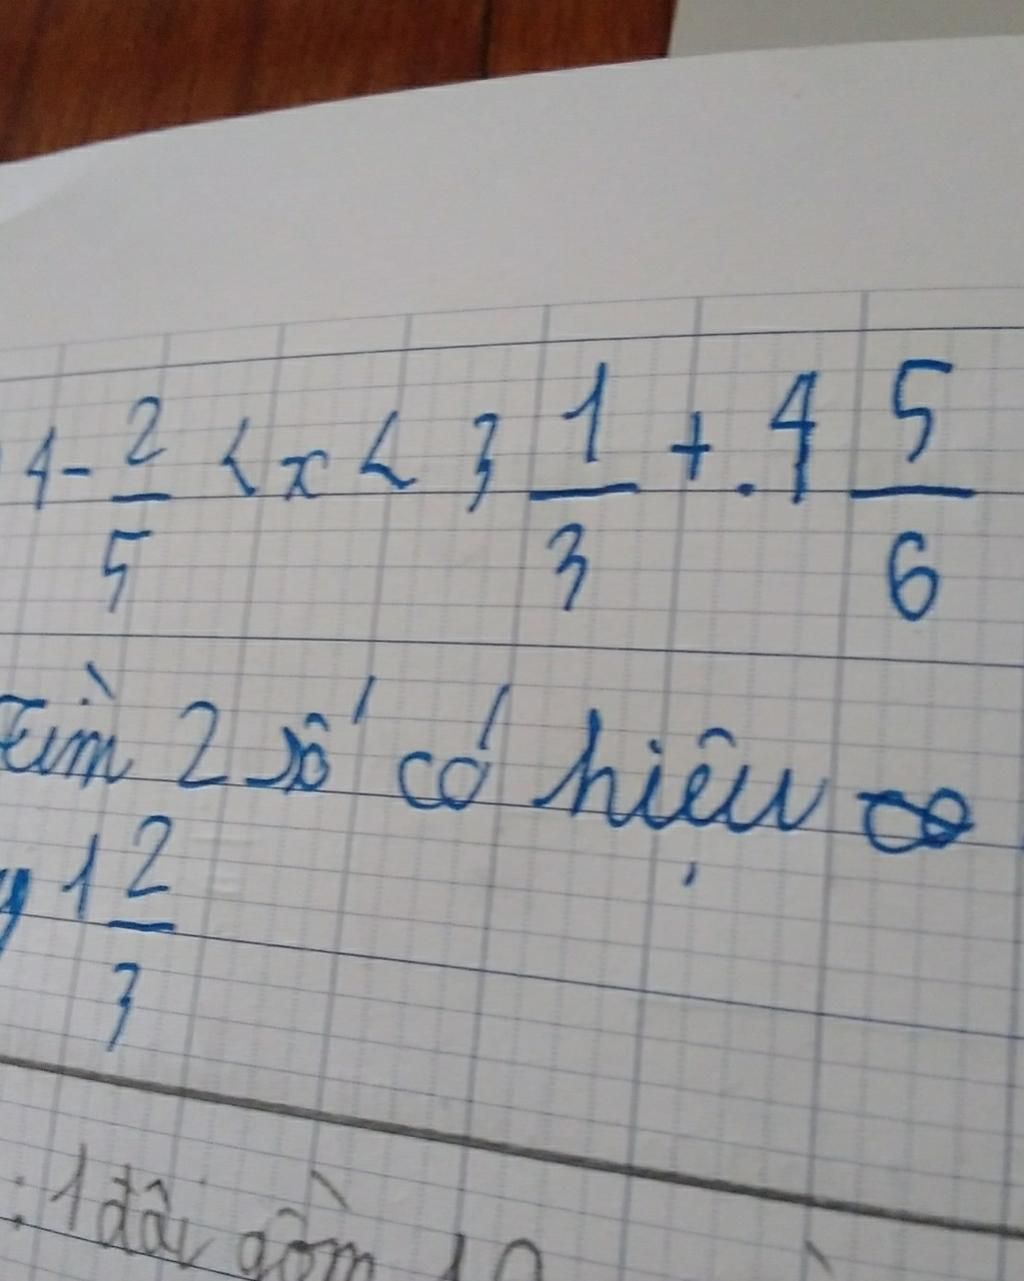 4 - 2/5 < x < 3 1/3 + . 4 5/6
Tìm 2 số có hiệu
1 2/3
: 1 đội gồm 10